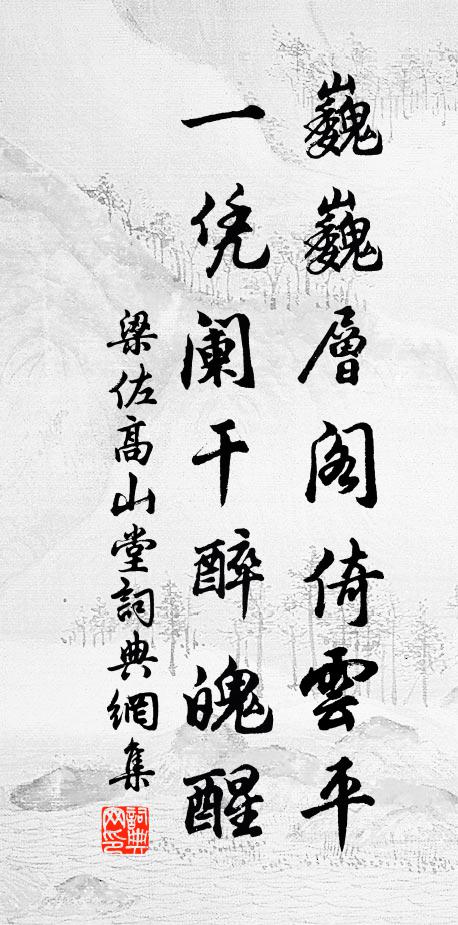 巍巍層閣倚雲平
一凭闌干醉魄醒
梁佐高山堂詞典網集
詞典网印